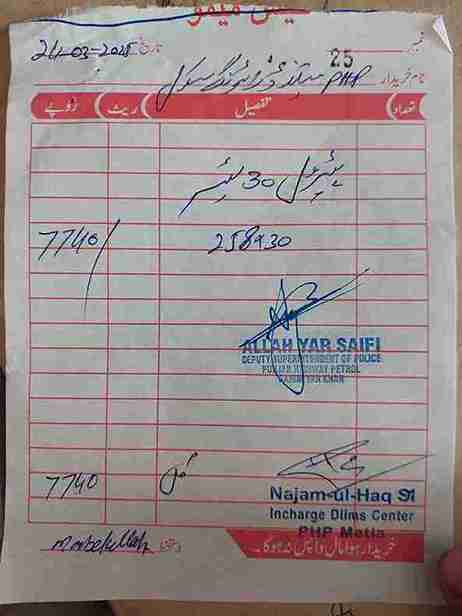 کیش میمو
نمبر 25 تاریخ 24-03-2025
نام خریدار PHP ڈرائیونگ سکول
تعداد تفصیل ریٹ روپے
پٹرول 30 لیٹر
258x30 7740/
ALLAH YAR SAIFI
DEPUTY SUPERINTENDENT OF POLICE
PUNJAB HIGHWAY PETROL
کل 7740
Najam-ul-Haq SI
Incharge Dlims Center
PHP Metla
خریدا ہوا مال واپس نہ ہوگا۔ دستخط